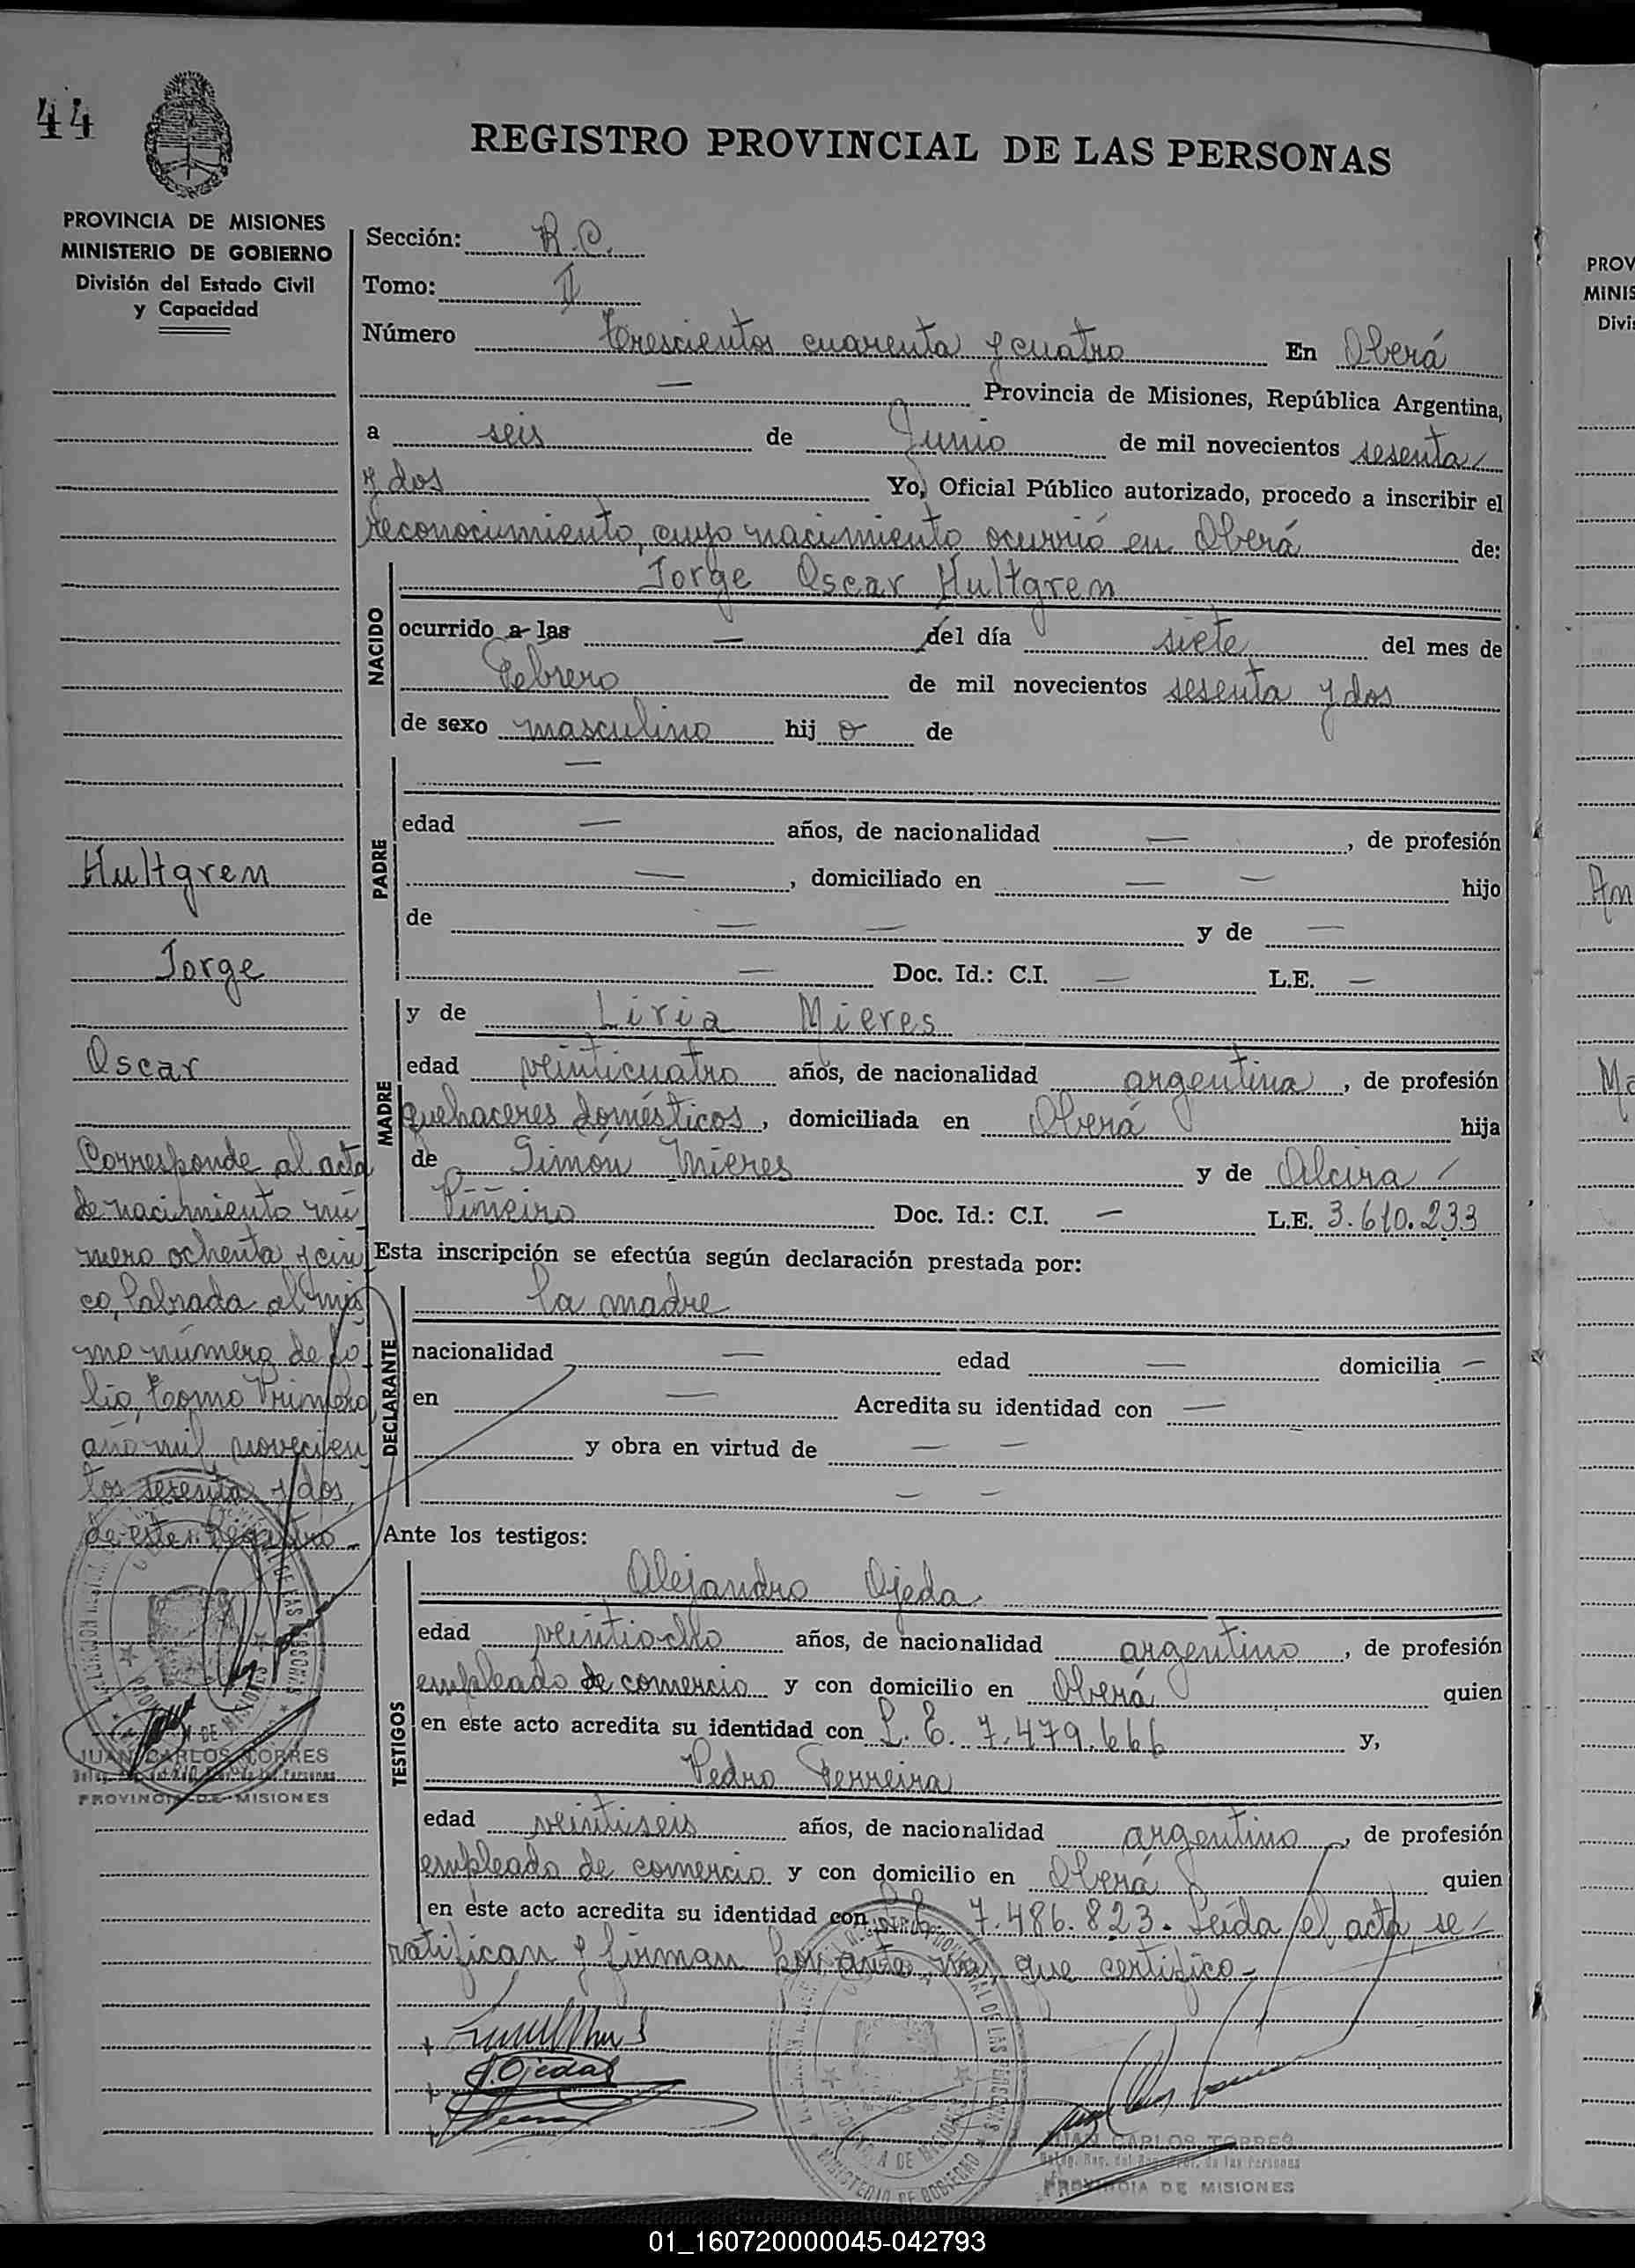 44
REGISTRO PROVINCIAL DE LAS PERSONAS
PROVINCIA DE MISIONES
MINISTERIO DE GOBIERNO
División del Estado Civil
y Capacidad
Sección: R.C.
Tomo: II
Número Trescientos cuarenta y cuatro En Oberá
— Provincia de Misiones, República Argentina,
a seis de Junio de mil novecientos sesenta
y dos Yo, Oficial Público autorizado, procedo a inscribir el
reconocimiento, cuyo nacimiento ocurrió en Oberá de:
NACIDO
Jorge Oscar Hultgren
ocurrido a las — del día siete del mes de
Febrero de mil novecientos sesenta y dos
de sexo masculino hij o de
PADRE
—
edad — años, de nacionalidad —, de profesión
—, domiciliado en — — hijo
de — — y de —
— Doc. Id.: C.I. — L.E. —
MADRE
y de Liria Mieres
edad veinticuatro años, de nacionalidad argentina, de profesión
quehaceres domésticos, domiciliada en Oberá hija
de Simón Mieres y de Alcira
Piñeiro Doc. Id.: C.I. — L.E. 3.610.233
Esta inscripción se efectúa según declaración prestada por:
DECLARANTE
la madre
nacionalidad — edad — domicilia —
en — Acredita su identidad con —
y obra en virtud de — —
— —
Ante los testigos:
TESTIGOS
Alejandro Ojeda
edad veintiocho años, de nacionalidad argentino, de profesión
empleado de comercio y con domicilio en Oberá quien
en este acto acredita su identidad con L.E. 7.479.666 y,
Pedro Ferreira
edad veintiseis años, de nacionalidad argentino, de profesión
empleado de comercio y con domicilio en Oberá quien
en este acto acredita su identidad con L.E. 7.486.823. Leída el acta, se
ratifican y firman por ante, mi, que certifico.-
A.Ojeda
JUAN CARLOS TORRES
Deleg. Reg. del Reg. Prov. de las Personas
PROVINCIA DE MISIONES
Hultgren
Jorge
Oscar
Corresponde al acta
de nacimiento nú
mero ochenta y cin
co, labrada al mis
mo número de fo
lio, Tomo Primero,
año mil novecien
tos sesenta y dos,
de este Registro.-
JUAN CARLOS TORRES
Deleg. Reg. del Reg. Prov. de las Personas
PROVINCIA DE MISIONES
PROV
MINIS
Divi
Am
Ma
01_160720000045-042793